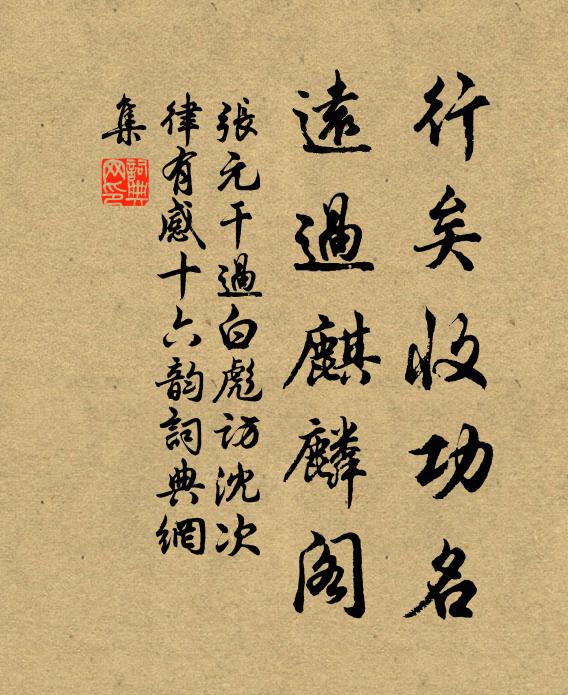 行矣收功名
遠過麒麟閣
張元干過白彪訪沈次
律有感十六韵詞典網
集
詞典
网印